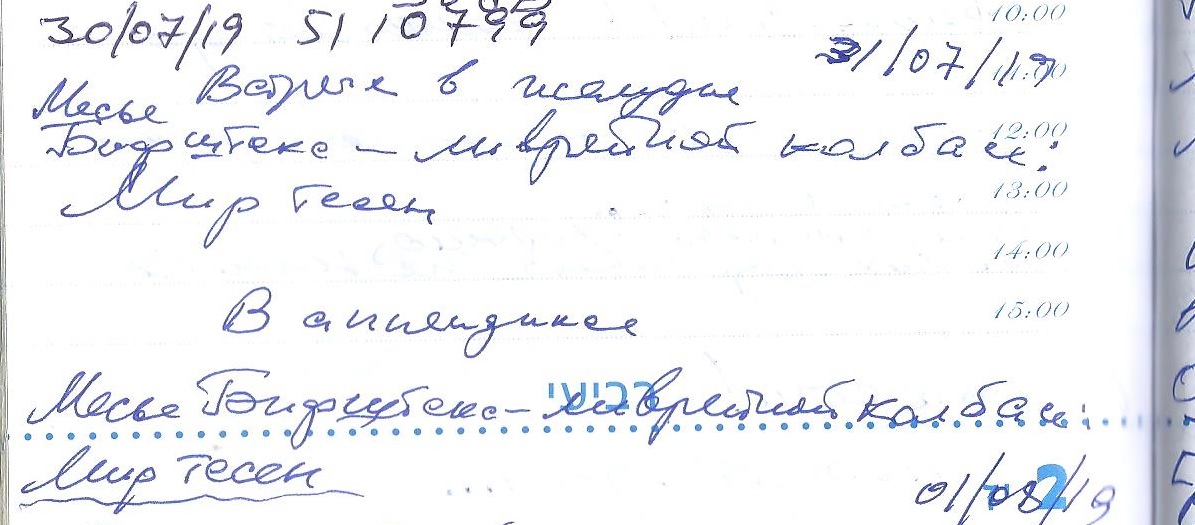 30/07/19 51 10799
10:00
31/07/19
11:00
Встреча в желудке
Месье
Бифштекс – ливрейной колбасе:
12:00
Мир тесен
13:00
14:00
В аппендиксе
15:00
רביעי
Месье Бифштекс – ливрейной колбасе:
Мир тесен
2
01/08/19